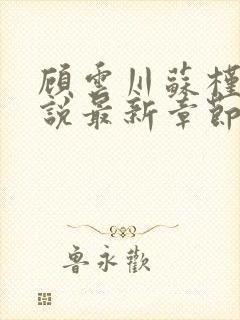 顧雲川蘇槿
說最新章節
魯永歡